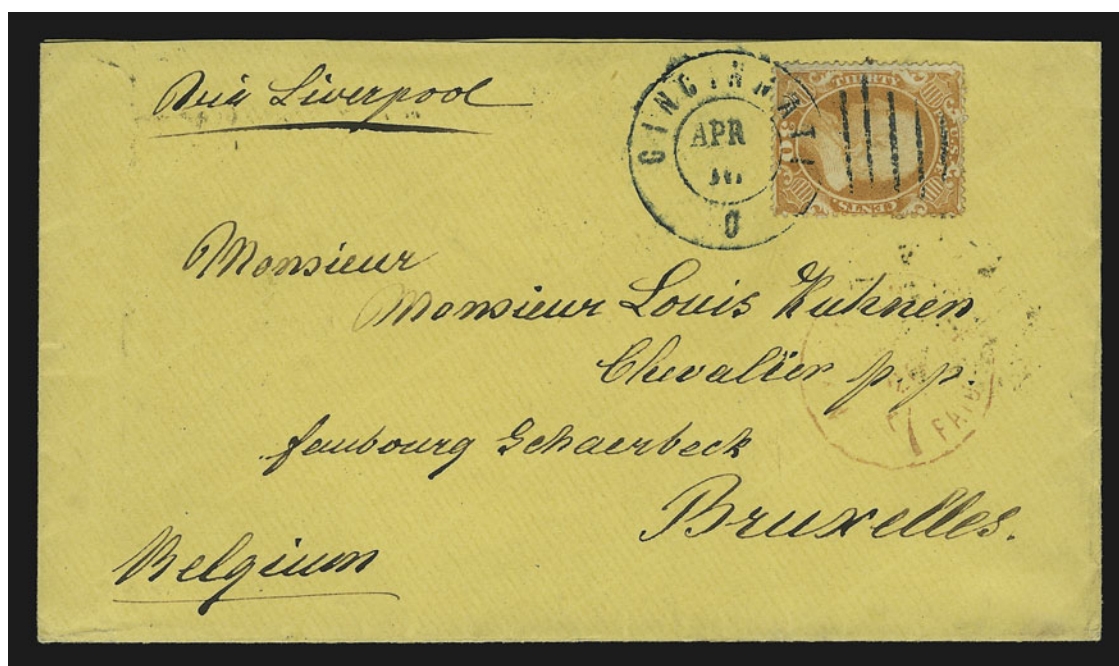 Via Liverpool
CINCINNATI
APR
16
O
THIRTY
U.S.
30
CENTS
Monsieur
Monsieur Louis Kuhnen
Chevalier p. p.
faubourg Schaerbeck
Bruxelles.
Belgium
PAID